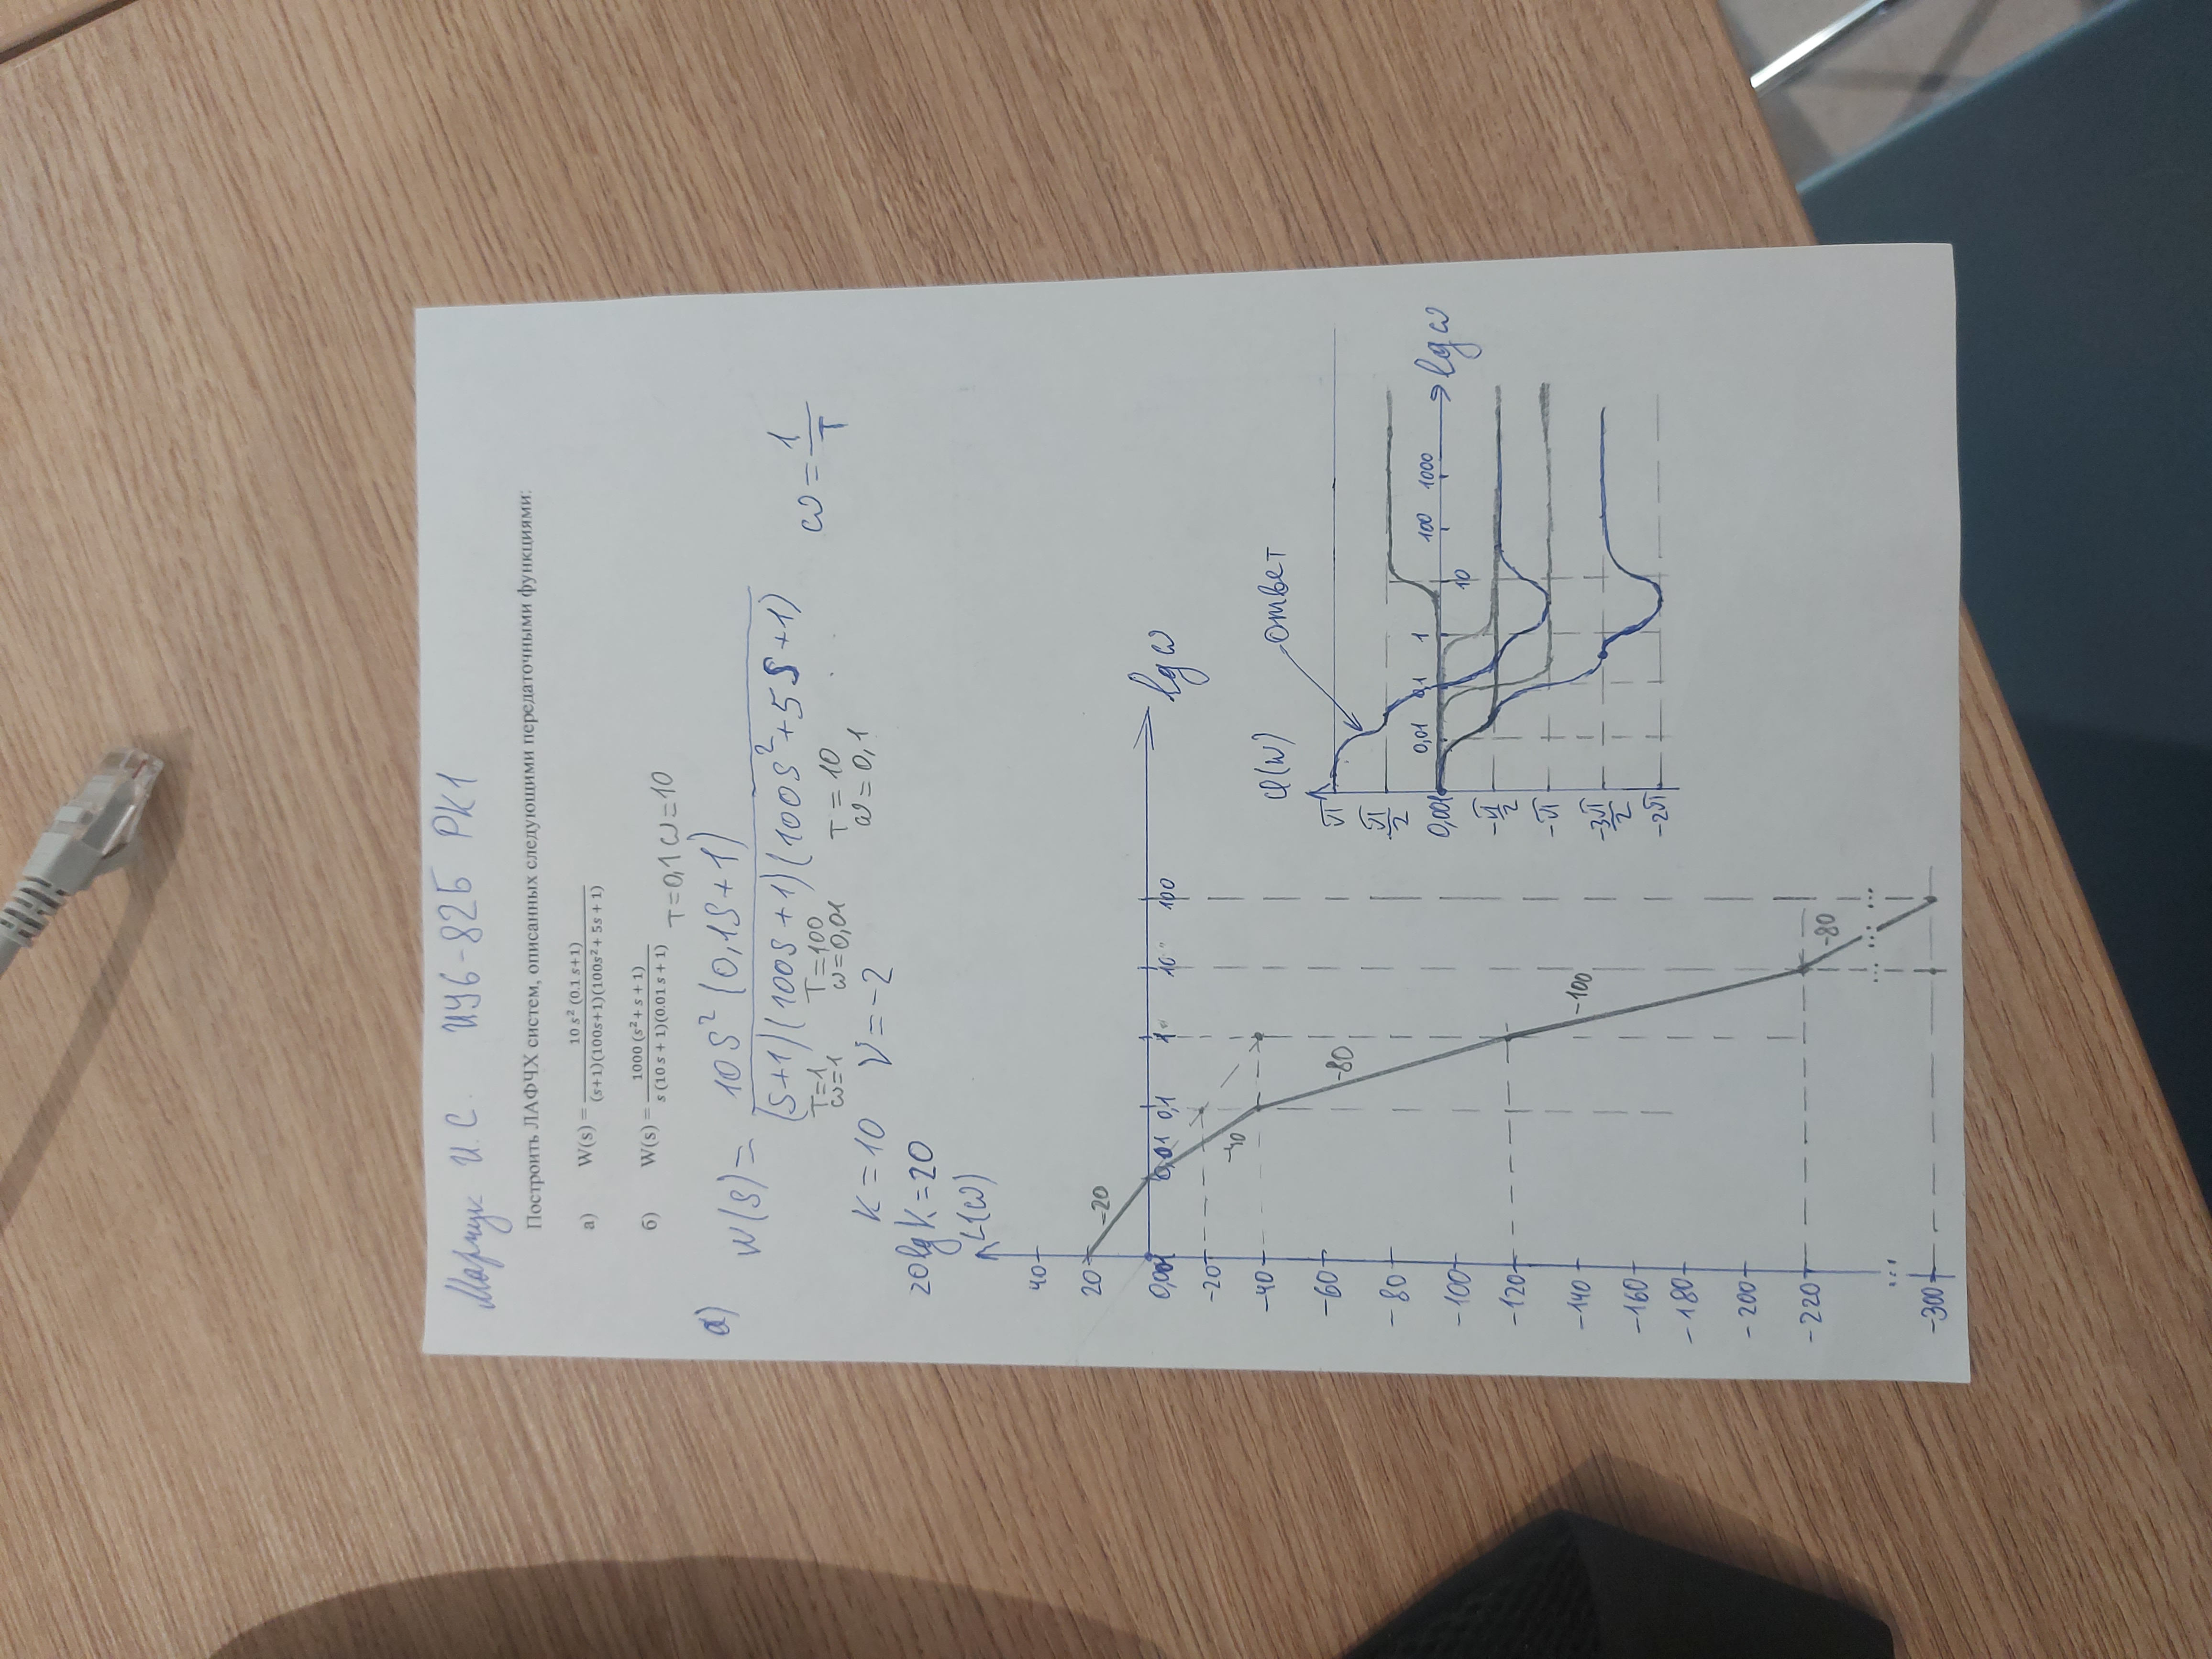 Марчук И. С. ИУ6-82Б РК1
Построить ЛАФЧХ систем, описанных следующими передаточными функциями:
а) W(s) = 10 s² (0.1 s+1) / (s+1)(100s+1)(100s²+ 5s + 1)
б) W(s) = 1000 (s²+ s + 1) / s (10 s + 1)(0.01 s + 1)
T=0,1 ω=10
а) W(s) = 10S² (0,1S+1) / (S+1)(100S+1)(100S²+5S+1)
T=1 T=100 T = 10
ω=1 ω=0,01 ω=0,1
ω = 1/T
K = 10 ν = -2
20lgK=20
L(ω)
40
20
-20
0,001 0,01 0,1 1 10 100 lgω
-20
-40
-40
-60
-80
-80
-100
-120
-140
-100
-160
-180
-200
-220
-80
...
-300
φ(ω) ответ
π
π/2
0,01 0,1 1 100 1000
0,001 10 lgω
-π/2
-π
-3π/2
-2π